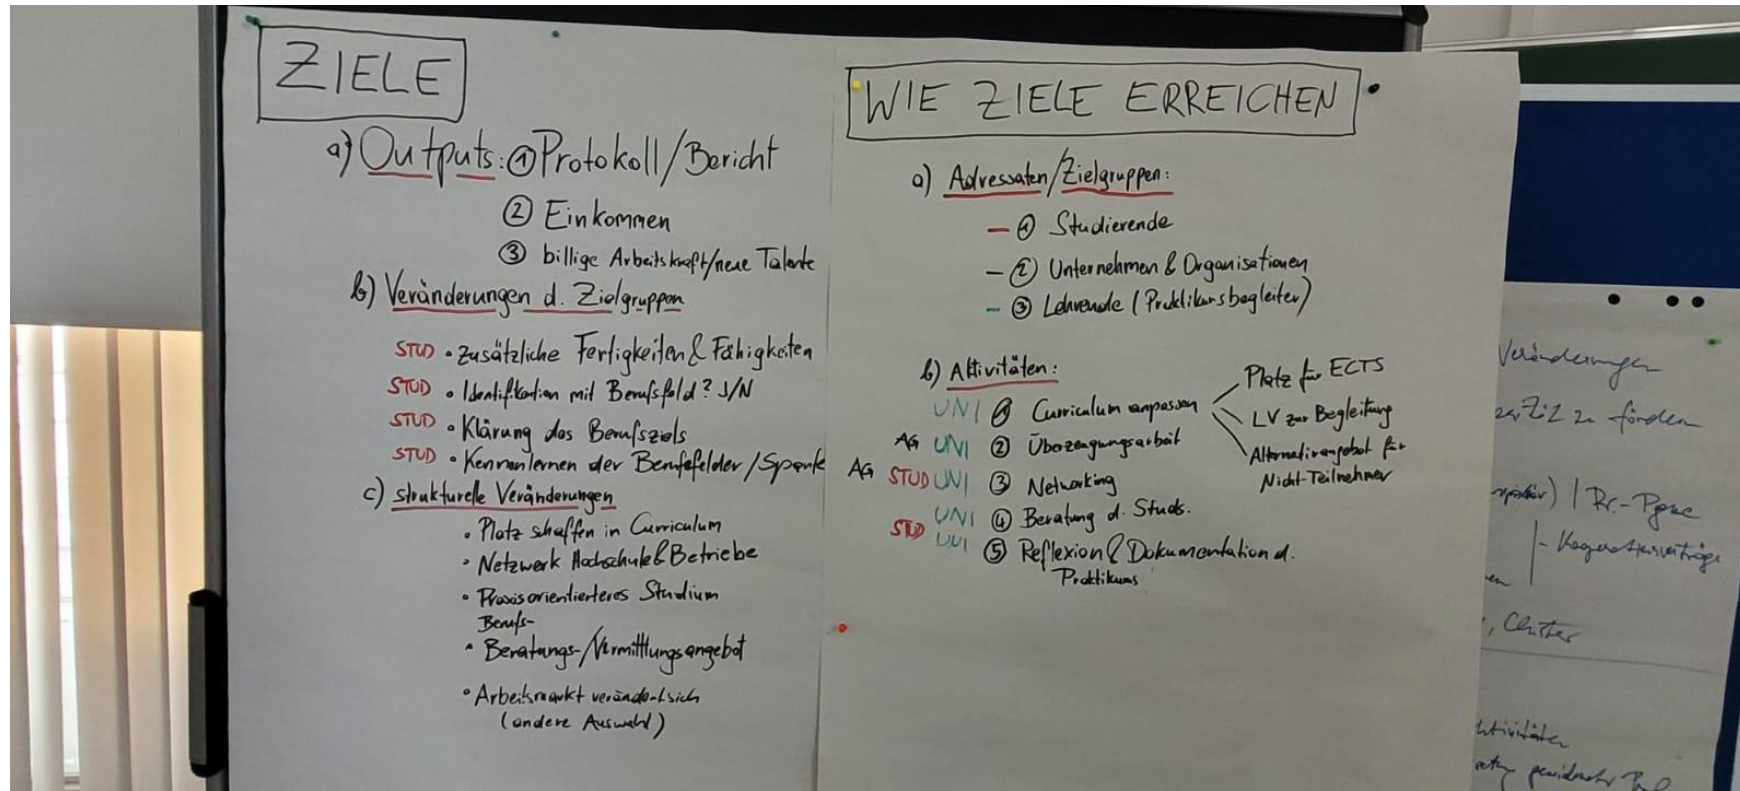 ZIELE
a) Outputs: ① Protokoll/Bericht
② Einkommen
③ billige Arbeitskraft/neue Talente
b) Veränderungen d. Zielgruppen
STUD • zusätzliche Fertigkeiten & Fähigkeiten
STUD • Identifikation mit Berufsfeld? J/N
STUD • Klärung des Berufsziels
STUD • Kennenlernen der Berufsfelder/
c) strukturelle Veränderungen
• Platz schaffen in Curriculum
• Netzwerk Hochschule & Betriebe
• Praxisorientierteres Studium
Berufs-
• Beratungs-/Vermittlungsangebot
• Arbeitsmarkt verändert sich
(andere Auswahl)
WIE ZIELE ERREICHEN
a) Adressaten/Zielgruppen:
– ① Studierende
– ② Unternehmen & Organisationen
– ③ Lehrende (Praktikumsbegleiter)
b) Aktivitäten:
UNI ① Curriculum anpassen
Platz für ECTS
LV zur Begleitung
Alternativangebot für
Nicht-Teilnehmer
AG UNI ② Überzeugungsarbeit
AG STUD UNI ③ Networking
UNI ④ Beratung d. Studs.
STUD UNI ⑤ Reflexion & Dokumentation d.
Praktikums
Veränderungen
zu fördern
Kooperationsverträge
, Cluster